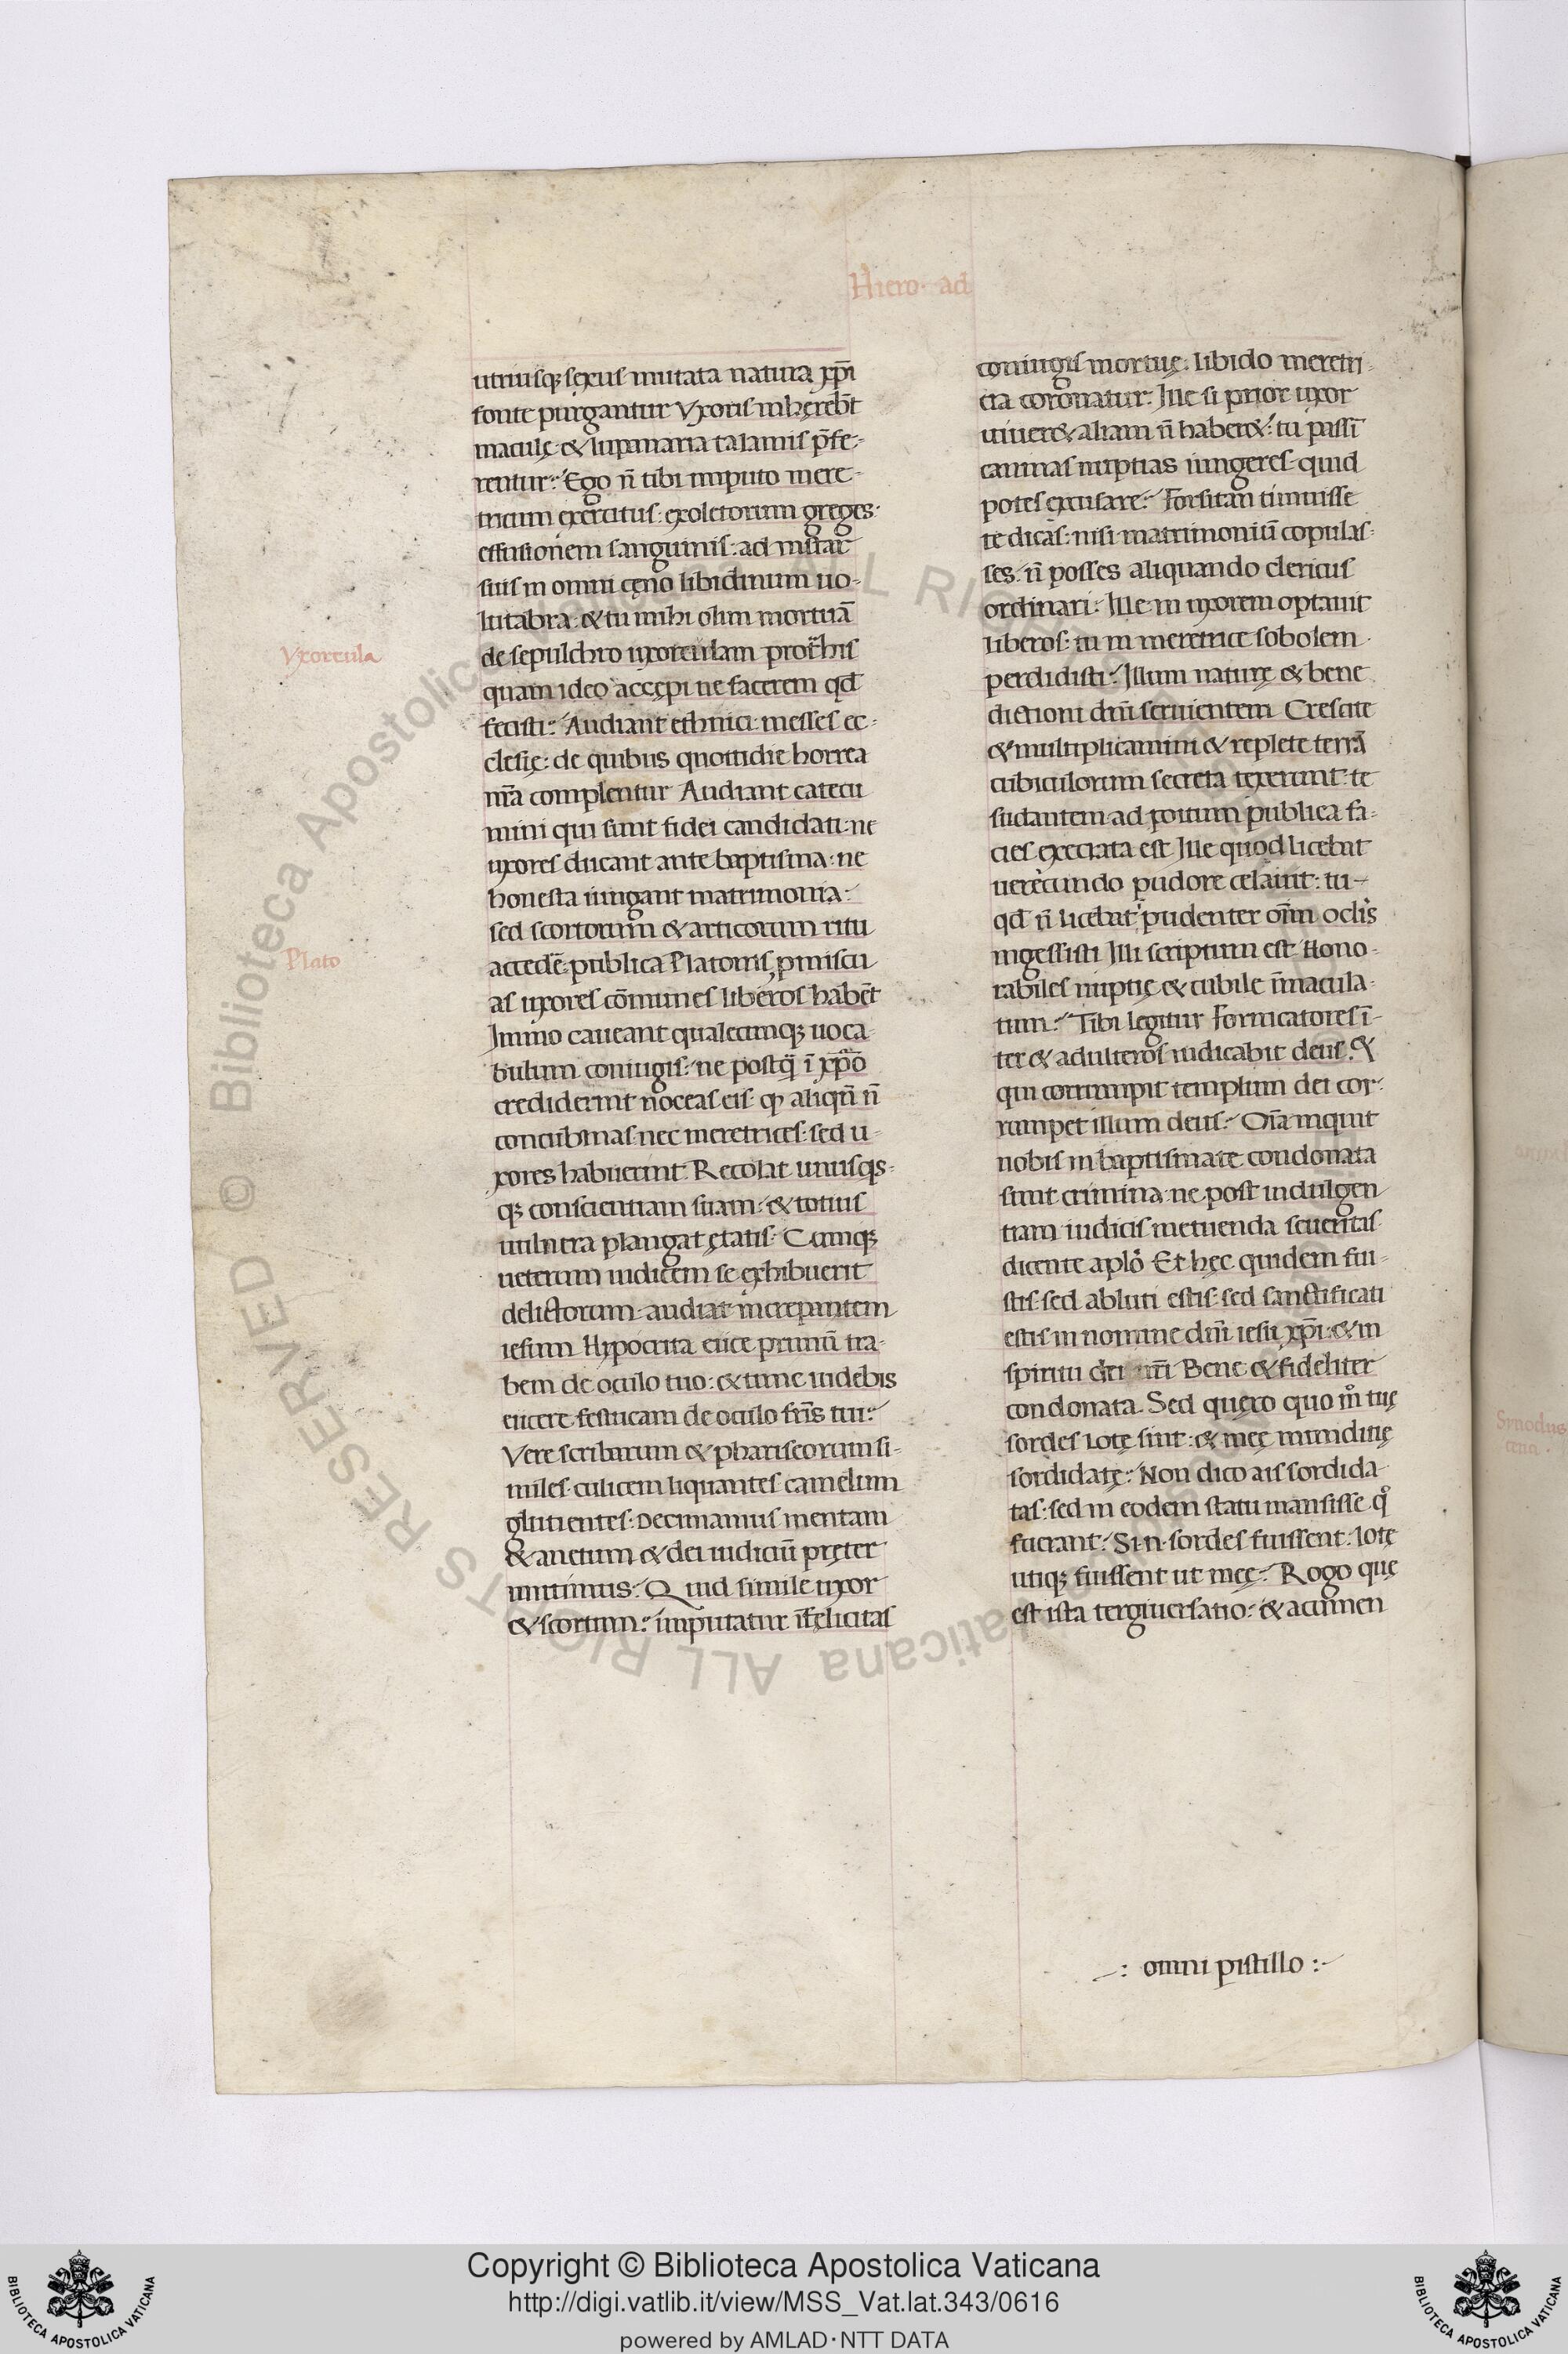 Hiero· ad
utriusq; sexus mutata natura xp̄i
fonte purgantur Vxoris inherēbt
maculę· & lupanaria talamis p̄fe-
rentur: Ego n̄ tibi imputo mere-
tricum exercitus· exoletorum greges·
effusionem sanguinis: ad instar
suis in omni cęno libidinum uo-
lutabra· & tu mihi olim mortuā
Vxorcula
de sepulchro uxorculam prot̄his
quam ideo accępi ne facerem qd̄
fecisti: Audiant ethnici· messes ec-
clesię: de quibus quottidie horrea
nr̄a complentur Audiant catecu
mini qui sunt fidei candidati· ne
uxores ducant ante baptisma· ne
honesta iungant matrimonia·
sed scortorum & articorum ritu
Plato
accedē· publica Platonis p̱miscu
as uxores cōmunes liberos habēt
Immo caueant qualecunq; uoca
bulum coniugis· ne postq̄ ī xp̄o
crediderint noceas eis· qp aliqn̄ n̄
concubinas· nec meretrices· sed u-
xores habuerint Recolat unusqs-
q; conscientiam suam· & totius
uulnera plangat ętatis· Cumq;
ueterum iudicem se exhibuerit
delictorum· audiat increpantem
iesum Hypocrita eiice primū tra-
bem de oculo tuo: & tunc uidebis
eiicere festucam de oculo fr̄is tui:
Vere scribarum & phariseorum si-
miles· culicem liquantes camelum
glutientes· Decimamus mentam
& anetum & dei iudiciū pręter
mittimus: Quid simile uxor
& scortum: imputatur īfelicitas
coniugis mortuę: libido meretri-
cia coronatur: Ille si prior uxor
uiuer& aliam n̄ haber&: tu passī
caninas nuptias iungeres· quid
potes excusare: Forsitan timuisse
te dicas: nisi matrimoniū copulas-
ses· n̄ posses aliquando clericus
ordinari: Ille in uxorem optauit
liberos: tu in meretrice sobolem
perdidisti: Illum naturę & bene
dictioni dn̄i seruientem Crescite
& multiplicamini & replete terrā
cubiculorum secreta texerunt· te
sudantem ad coitum publica fa-
cies execrata est Ille quod licebat
uerecundo pudore celauit: tu-
qd̄ n̄ licebat p̓udenter om̄ oclis
ingessisti Illi scriptum est Hono-
rabiles nuptię & cubile īmacula-
tum: Tibi legitur Fornicatores ī-
ter & adulteros iudicabit deus· &
qui corrumpit templum dei cor-
rumpet illum deus: Oīa inquit
nobis in baptismate condonata
sunt crimina· ne post indulgen
tiam iudicis metuenda seueritas
dicente aplo Et hęc quidem fui-
stis· sed abluti estis· sed sanctificati
estis in nomine dn̄i iesu xp̄i· & in
spiritu dei nr̄i Bene & fideliter
condonata Sed quęro quo m̊ tuę
sordes lotę sint: & meę munditię
sordidatę: Non dico ais sordida
tas· sed in eodem statu mansisse q̊
fuerant: Si·n·sordes fuissent· lotę
utiq; fuissent ut meę: Rogo quę
est ista tergiuersatio: & acumen
-: omni pistillo :-
Sinodus
cena ·
Copyright © Biblioteca Apostolica Vaticana
http://digi.vatlib.it/view/MSS_Vat.lat.343/0616
powered by AMLAD·NTT DATA
BIBLIOTECA APOSTOLICA VATICANA
BIBLIOTECA APOSTOLICA VATICANA